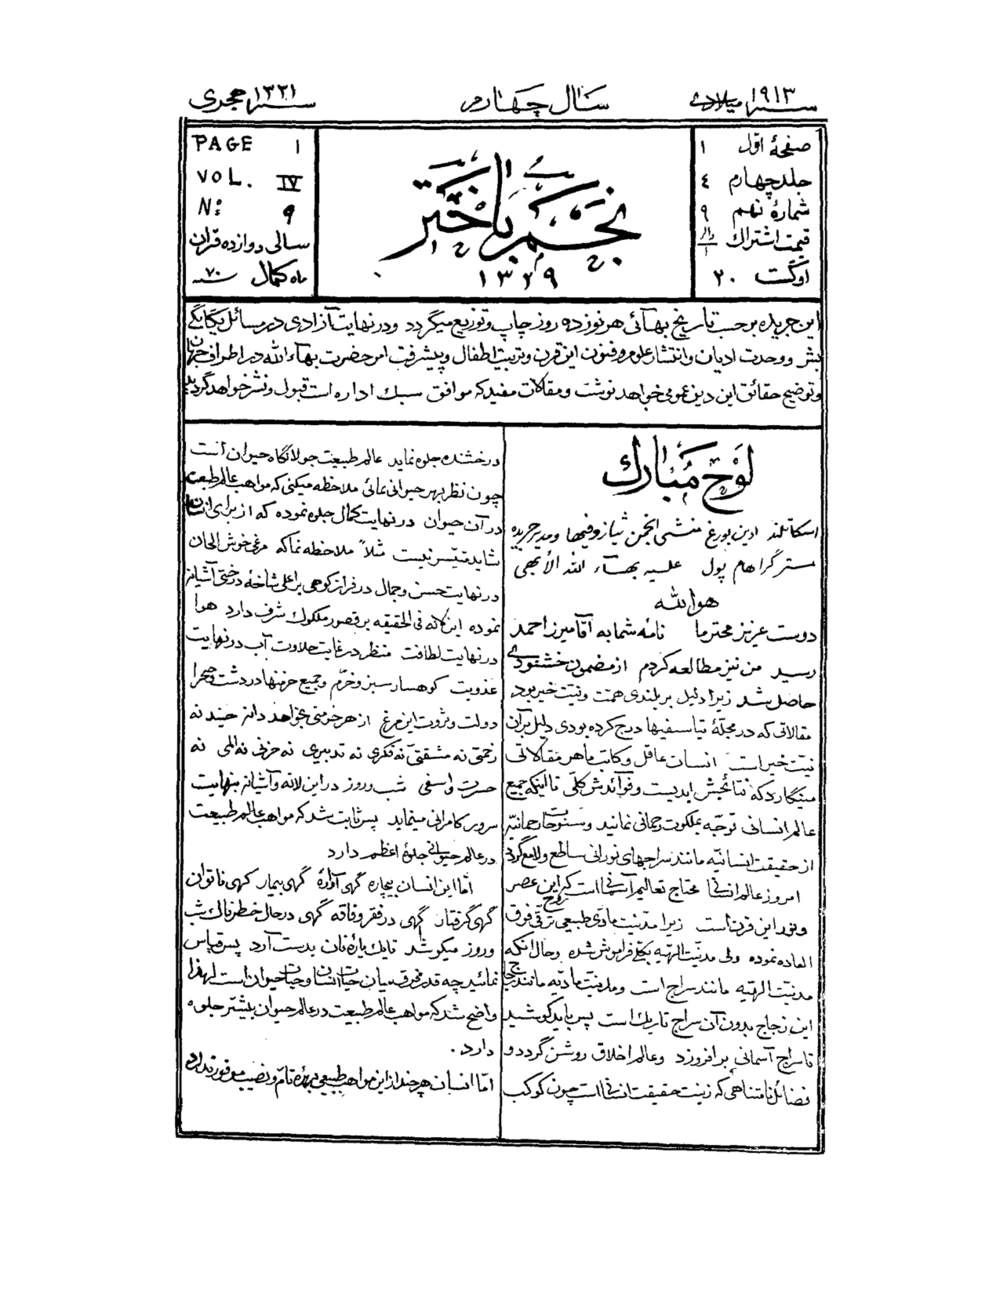 سنه ۱۹۱۳ میلادی
سال چهارم
سنه ۱۳۳۱ هجری
صفحهٔ اوّل ۱
جلد چهارم ۴
شمارهٔ نهم ۹
قیمت اشتراک
اوگت ۲۰
نجم باختر
۱۳۲۹
PAGE ۱
VOL. IV
Nº ۹
سالی دوازده قران
ماه کمال سنه ۷۰
این جریده برحسب تاریخ بهائی هر نوزده روز چاپ و توزیع میگردد و در نهایت آزادی در مسائل یگانگی
بشر و وحدت ادیان و انتشار علوم و فنون این قرن و تربیت اطفال و پیشرفت امر حضرت بهاءالله در اطراف جهان
و توضیح حقائق این دین عمومی خواهد نوشت و مقالات مفیده که موافق سبک اداره است قبول و نشر خواهد گردید
لوح مبارک
اسکاتلند ادین بورغ منشی انجمن ثیازوفیها و مدیر جریده
مستر گراهام پول علیه بهاء الله الأبهی
هو الله
دوست عزیز محترما نامهٔ شما به آقا میرزا احمد
رسید من نیز مطالعه کردم از مضمون خشنودی
حاصل شد زیرا دلیل بر بلندی همت و نیّت خیر بود
مقالاتی که در مجلّهٔ ثیاسفیها درج کرده بودی دلیل بر آن
نیّت خیر است انسان عاقل و کاتب ماهر مقالاتی
مینگارد که نتائجش ابدیست و فوائدش کلّی تا اینکه جمیع
عالم انسانی توجّه بملکوت رحمانی نمایند و سنوحات رحمانیّه
از حقیقت انسانیّه مانند سراجهای نورانی ساطع و لامع گردد
امروز عالم انسانی محتاج تعالیم آسمانی است که روح این عصر
و نور این قرن است زیرا مدنیّت مادّی طبیعی ترقّی فوق
العاده نموده ولی مدنیّت الهیّه بکلّی فراموش شده و حال آنکه
مدنیّت الهیّه مانند سراج است و مدنیّت مادیّه مانند زجاج
این زجاج بدون آن سراج تاریک است پس باید کوشید
تا سراج آسمانی برافروزد و عالم اخلاق روشن گردد و
فضائل نامتناهی که زینت حقیقت انسانی است چون کوکب
درخشنده جلوه نماید عالم طبیعت جولانگاه حیوان است
چون نظر بهر حیوانی نمائی ملاحظه میکنی که مواهب عالم طبیعت
در آن حیوان در نهایت کمال جلوه نموده که از برای انسان
شاید متیسّر نیست مثلاً ملاحظه نما که مرغی خوش الحان
در نهایت حسن و جمال در فراز کوهی بر اعلی شاخهٔ درختی آشیانه
نموده این لانه فی الحقیقه بر قصور ملوک شرف دارد هوا
در نهایت لطافت منظر در غایت حلاوت آب در نهایت
عذوبت کوهسار سبز و خرّم و جمیع خرمنها در دشت و صحرا
دولت و ثروت این مرغ از هر خرمنی بخواهد دانه چیند نه
زحمتی نه مشقّتی نه فکری نه تدبیری نه حزنی نه المی نه
حسرت و اسفی شب و روز در این لانه و آشیانه بنهایت
سرور کامرانی مینماید پس ثابت شد که مواهب عالم طبیعت
در عالم حیوانی جلوهٔ اعظم دارد
امّا این انسان بیچاره گهی آواره گهی بیمار گهی ناتوان
گهی گرفتار گهی در فقر و فاقه گهی در حال خطرناک شب
و روز میکوشد تا یک پاره نان بدست آرد پس قیاس
نمائید چه قدر فرق میان حیات انسان و حیات حیوان است لهذا
واضح شد که مواهب عالم طبیعت در عالم حیوان بیشتر جلوه
دارد .
امّا انسان هر چند از این مواهب طبیعی بهرهٔ تام و نصیب موفور ندارد